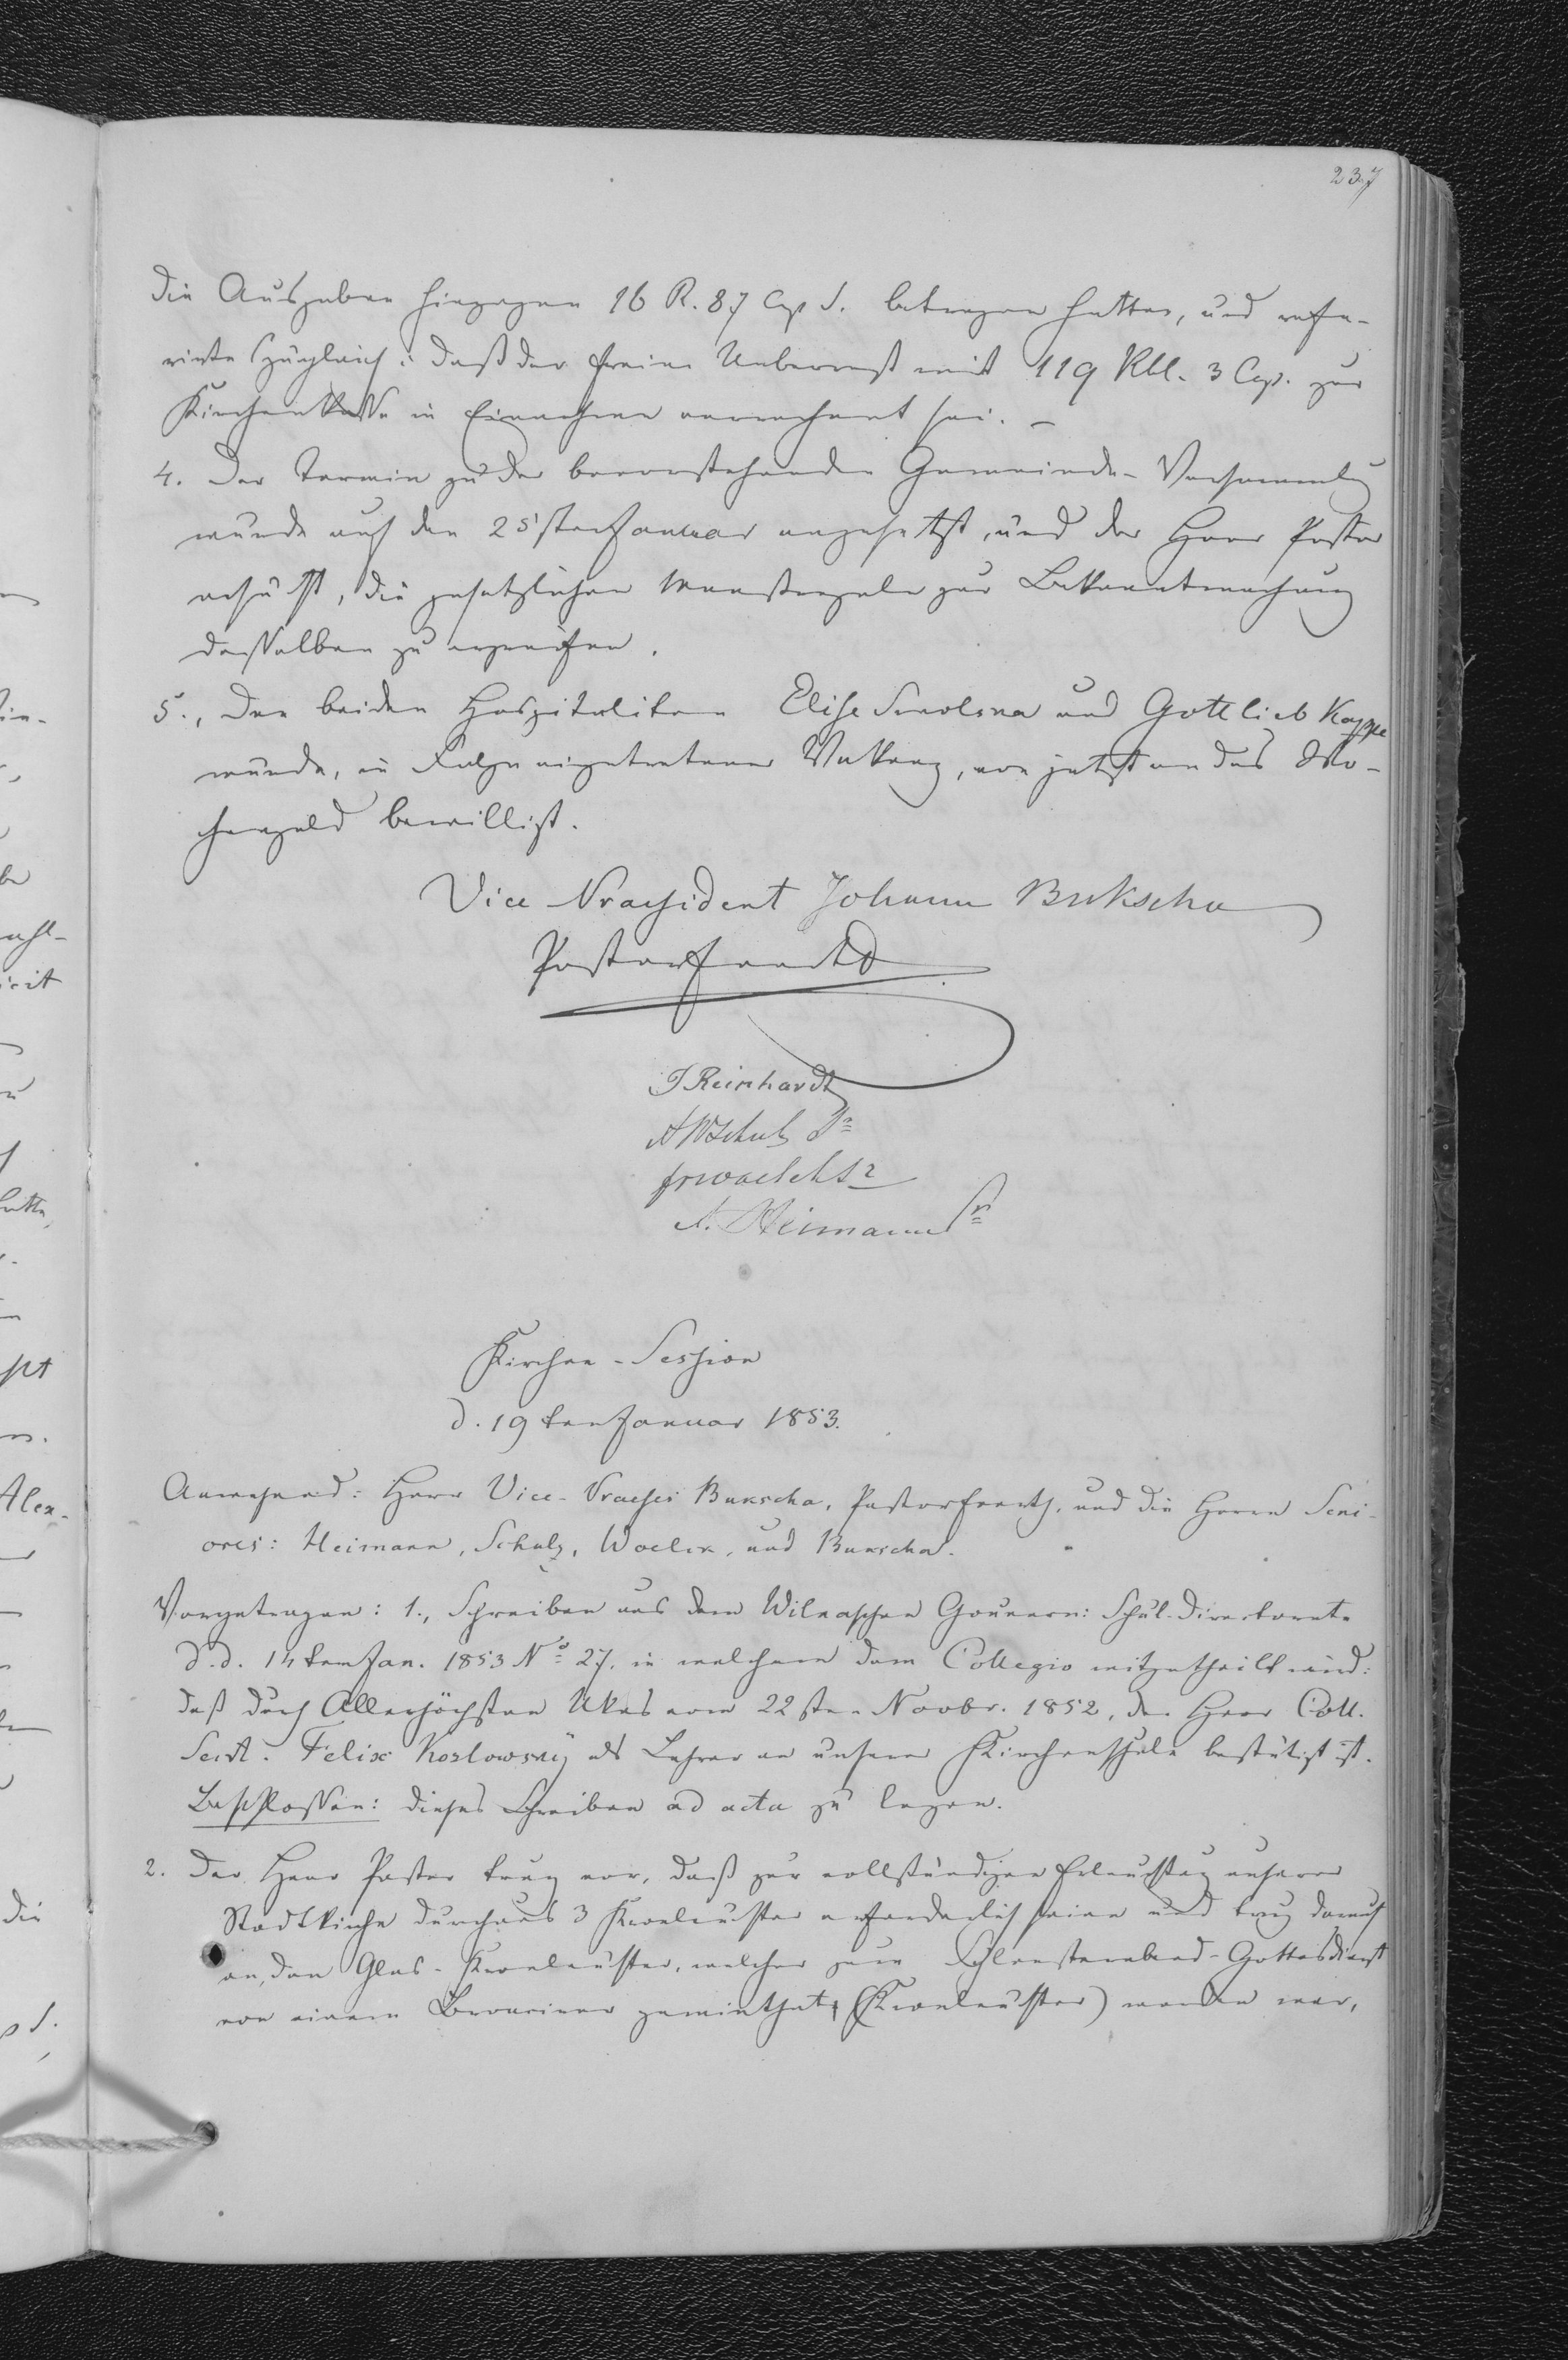 237
die Ausgaben hingegen 16 R. 87 Cop S. betragen hatten, und refe-
rirte zugleich: daß der freie Ueberrest mit 119 Rbl. 3 Cop. zur
Kirchenkasse in Einnahme verrechnet sei. –
4. Der Termin zu der bevorstehenden Gemeinde-Versammlug
wurde auf den 25sten Januar angesetzt, und der Herr Pastor
ersucht, die gesetzlichen Maasregeln zur Bekanntmachung
desselben zu ergreifen.
5., Den beiden Hospitaliten Elise Smolsna und Gottlieb Kappe
wurde, in Folge eingetretener Vakanz, von jetzt an das Wo-
chengeld bewilligt.
Vice Praesident Johann Bukscha
Pastor
J Reinhardt
A W Schulz Sr
A. Heimann Sr
Kirchen-Session
d. 19ten Januar 1853.
Anwesend: Herr Vice-Praeses Bukscha, Pastor, und die Herren Seni-
ores: Heimann, Schulz, Woelck, und Bukscha.
Vorgetragen: 1., Schreiben aus dem Wilnaschen Gouvern: Schul-Directorat
d. d. 14ten Jan. 1853 No 27, in welchem dem Collegio mitgetheilt wird:
daß durch Allerhöchsten Ukas vom 22sten Novbr. 1852, der Herr Coll.
Secrt. Felix Kozlowsky als Lehrer an unserer Kirchenschule bestätigt ist.
Beschlossen: dieses Schreiben ad acta zu legen.
2. Der Herr Pastor trug vor, daß zur vollständigen Erleuchtung unserer
Stadtkirche durchaus 3 Kronleuchter erforderlich seien und trug darauf
an, den Glas-Kronleuchter, welcher zum Sylvesterabend-Gottesdienst
von einem gemiethet (Kronleuchter) worden war,